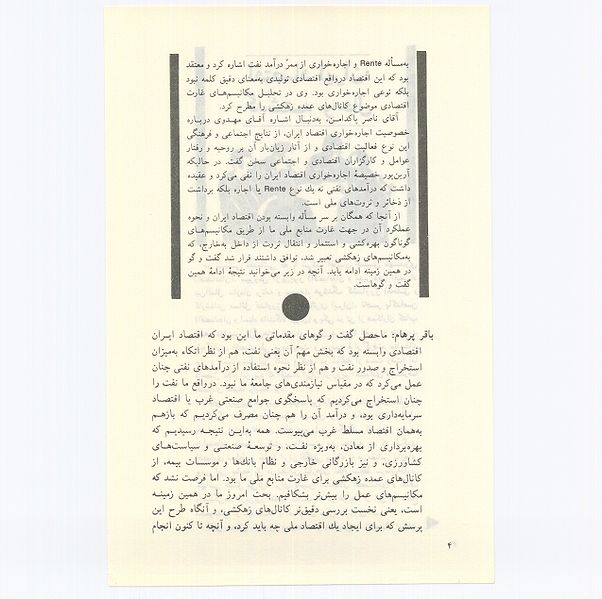 به‌مسأله Rente و اجاره‌خواری از ممرّ درآمد نفت اشاره کرد و معتقد
بود که این اقتصاد درواقع اقتصادی تولیدی به‌معنای دقیق کلمه نبود
بلکه نوعی اجاره‌خواری بود. وی در تحلیل مکانیسم‌های غارت
اقتصادی موضوع کانال‌های عمده زهکشی را مطرح کرد.
آقای ناصر پاکدامن، به‌دنبال اشاره آقای مهدوی درباره
خصوصیت اجاره‌خواری اقتصاد ایران، از نتایج اجتماعی و فرهنگی
این نوع فعالیت اقتصادی و از آثار زیان‌بار آن بر روحیه و رفتار
عوامل و کارگزاران اقتصادی و اجتماعی سخن گفت. در حالیکه
آرین‌پور خصیصهٔ اجاره‌خواری اقتصاد ایران را نفی می‌کرد و عقیده
داشت که درآمدهای نفتی نه یك نوع Rente یا اجاره بلکه برداشت
از ذخائر و ثروت‌های ملی است.
از آنجا که همگان بر سر مسأله وابسته بودن اقتصاد ایران و نحوه
عملکرد آن در جهت غارت منابع ملی ما از طریق مکانیسم‌های
گوناگون بهره‌کشی و استثمار و انتقال ثروت از داخل به‌خارج، که
به‌مکانیسم‌های زهکشی تعبیر شد، توافق داشتند قرار شد گفت و گو
در همین زمینه ادامه یابد. آنچه در زیر می‌خوانید نتیجهٔ ادامهٔ همین
گفت و گوهاست.
باقر پرهام: ماحصل گفت و گوهای مقدماتی ما این بود که اقتصاد ایران
اقتصادی وابسته بود که بخش مهمّ آن یعنی نفت، هم از نظر اتکاء به‌میزان
استخراج و صدور نفت و هم از نظر نحوه استفاده از درآمدهای نفتی چنان
عمل می‌کرد که در مقیاس نیازمندی‌های جامعهٔ ما نبود. درواقع ما نفت را
چنان استخراج می‌کردیم که پاسخگوی جوامع صنعتی غرب یا اقتصاد
سرمایه‌داری بود، و درآمد آن را هم چنان مصرف می‌کردیم که بازهم
به‌همان اقتصاد مسلط غرب می‌پیوست. همه به‌این نتیجه رسیدیم که
بهره‌برداری از معادن، به‌ویژه نفت، و توسعهٔ صنعتی و سیاست‌های
کشاورزی، و نیز بازرگانی خارجی و نظام بانك‌ها و موسسات بیمه، از
کانال‌های عمده زهکشی برای غارت منابع ملی ما بود. اما فرصت نشد که
مکانیسم‌های عمل را بیش‌تر بشکافیم. بحث امروز ما در همین زمینه
است، یعنی نخست بررسی دقیق‌تر کانال‌های زهکشی، و آنگاه طرح این
پرسش که برای ایجاد یك اقتصاد ملی چه باید کرد، و آنچه تا کنون انجام
۴